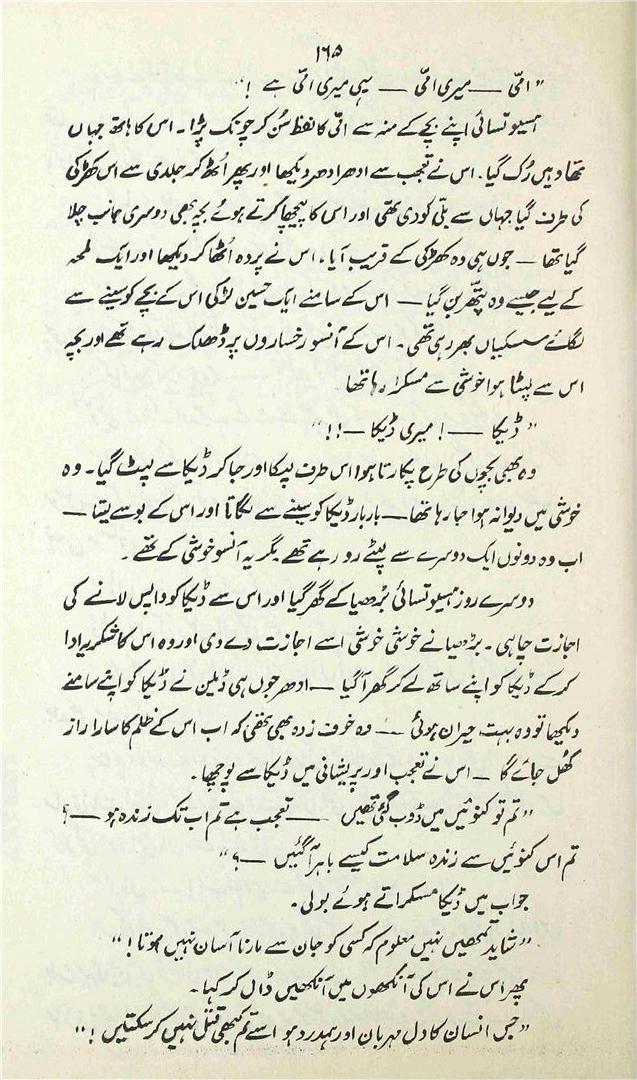 ۱۶۵
"امّی — میری امّی — یہی میری امّی ہے !"
ہسیو تسائی اپنے بچے کے منہ سے امّی کا لفظ سُن کر چونک پڑا۔ اس کا ہاتھ جہاں
تھا وہیں رُک گیا۔ اس نے تعجب سے ادھر ادھر دیکھا اور پھر اُٹھ کر جلدی سے اس کھڑکی
کی طرف گیا جہاں سے بلّی کودی تھی اور اس کا پیچھا کرتے ہوئے بچہ بھی دوسری جانب چلا
گیا تھا — جوں ہی وہ کھڑکی کے قریب آیا۔ اس نے پردہ اُٹھا کر دیکھا اور ایک لمحہ
کے لیے جیسے وہ پتھّر بن گیا — اس کے سامنے ایک حسین لڑکی اس کے بچے کو سینے سے
لگائے سسکیاں بھر رہی تھی۔ اس کے آنسو رخساروں پر ڈھلک رہے تھے اور بچہ
اس سے لپٹا ہوا خوشی سے مسکرا رہا تھا
"ڈیکا — ! میری ڈیکا — !!"
وہ بھی بچوں کی طرح پکارتا ہوا اس طرف لپکا اور جا کر ڈیکا سے لپٹ گیا۔ وہ
خوشی میں دیوانہ ہوا جا رہا تھا — بار بار ڈیکا کو سینے سے لگاتا اور اس کے بوسے لیتا —
اب وہ دونوں ایک دوسرے سے لپٹے رو رہے تھے مگر یہ آنسو خوشی کے تھے۔
دوسرے روز ہسیو تسائی بڑھیا کے گھر گیا اور اس سے ڈیکا کو واپس لانے کی
اجازت چاہی۔ بڑھیا نے خوشی خوشی اسے اجازت دے دی اور وہ اس کا شکریہ ادا
کر کے ڈیکا کو اپنے ساتھ لے کر گھر آ گیا — ادھر جوں ہی ڈیلین نے ڈیکا کو اپنے سامنے
دیکھا تو وہ بہت حیران ہوئی — وہ خوف زدہ بھی تھی کہ اب اس کے ظلم کا سارا راز
کھُل جائے گا — اس نے تعجب اور پریشانی میں ڈیکا سے پوچھا۔
"تم تو کنوئیں میں ڈوب گئی تھیں — تعجب ہے تم اب تک زندہ ہو — ؟
تم اس کنوئیں سے زندہ سلامت کیسے باہر آ گئیں — ؟"
جواب میں ڈیکا مسکراتے ہوئے بولی۔
"شاید تمھیں نہیں معلوم کہ کسی کو جان سے مارنا آسان نہیں ہوتا !"
پھر اس نے اس کی آنکھوں میں آنکھیں ڈال کر کہا۔
"جس انسان کا دل مہربان اور ہمدرد ہو اسے تم کبھی قتل نہیں کر سکتیں !"